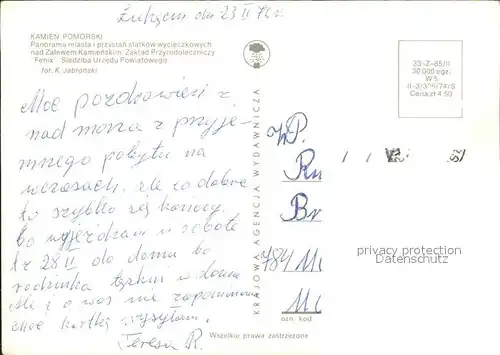 Łukęcin dn 23 II 76 r.
KAMIEŃ POMORSKI
Panorama miasta i przystań statków wycieczkowych
nad Zalewem Kamieńskim. Zakład Przyrodoleczniczy
"Fenix". Siedziba Urzędu Powiatowego
fot. K. Jabłoński
33-Z-85/II
30 000 egz.
W 5
Cena zł 4.50
Moc pozdrowień z
nad morza z przyje-
mnego pobytu na
wczasach. ale co dobre
to szybko się kończy.
bo wyjeżdżam w sobotę
28 II do domu bo
rodzinka tęskni w domu
Ale i o was nie zapominam
Moc kartkę wysyłam.
Teresa R.
KRAJOWA AGENCJA WYDAWNICZA
WP.
Ru
Br
784 M
M
ozn. kod
privacy protection
Datenschutz
Wszelkie prawa zastrzeżone